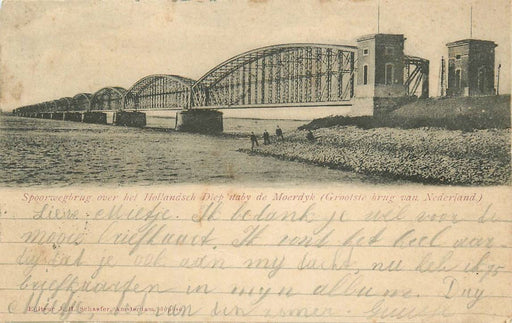 Spoorwegbrug over het Hollandsch Diep nabij de Moerdyk (Grootste brug van Nederland.)
Lieve Mietje. Ik bedank je wel voor de
mooie briefkaart. Ik vond het heel aar-
dig dat je ook aan my dacht, nu heb ik
briefkaarten in myn album. Dag
Mietje, van
Schaefer, Amsterdam